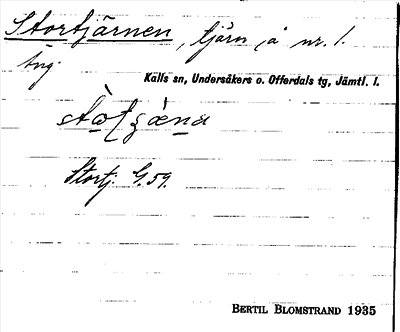 Stortjärnen, tjärn, å nr. 1.
äng.
Kalls sn, Undersåkers o. Offerdals tg, Jämtl. l.
Stortj. G. 59.
BERTIL BLOMSTRAND 1935